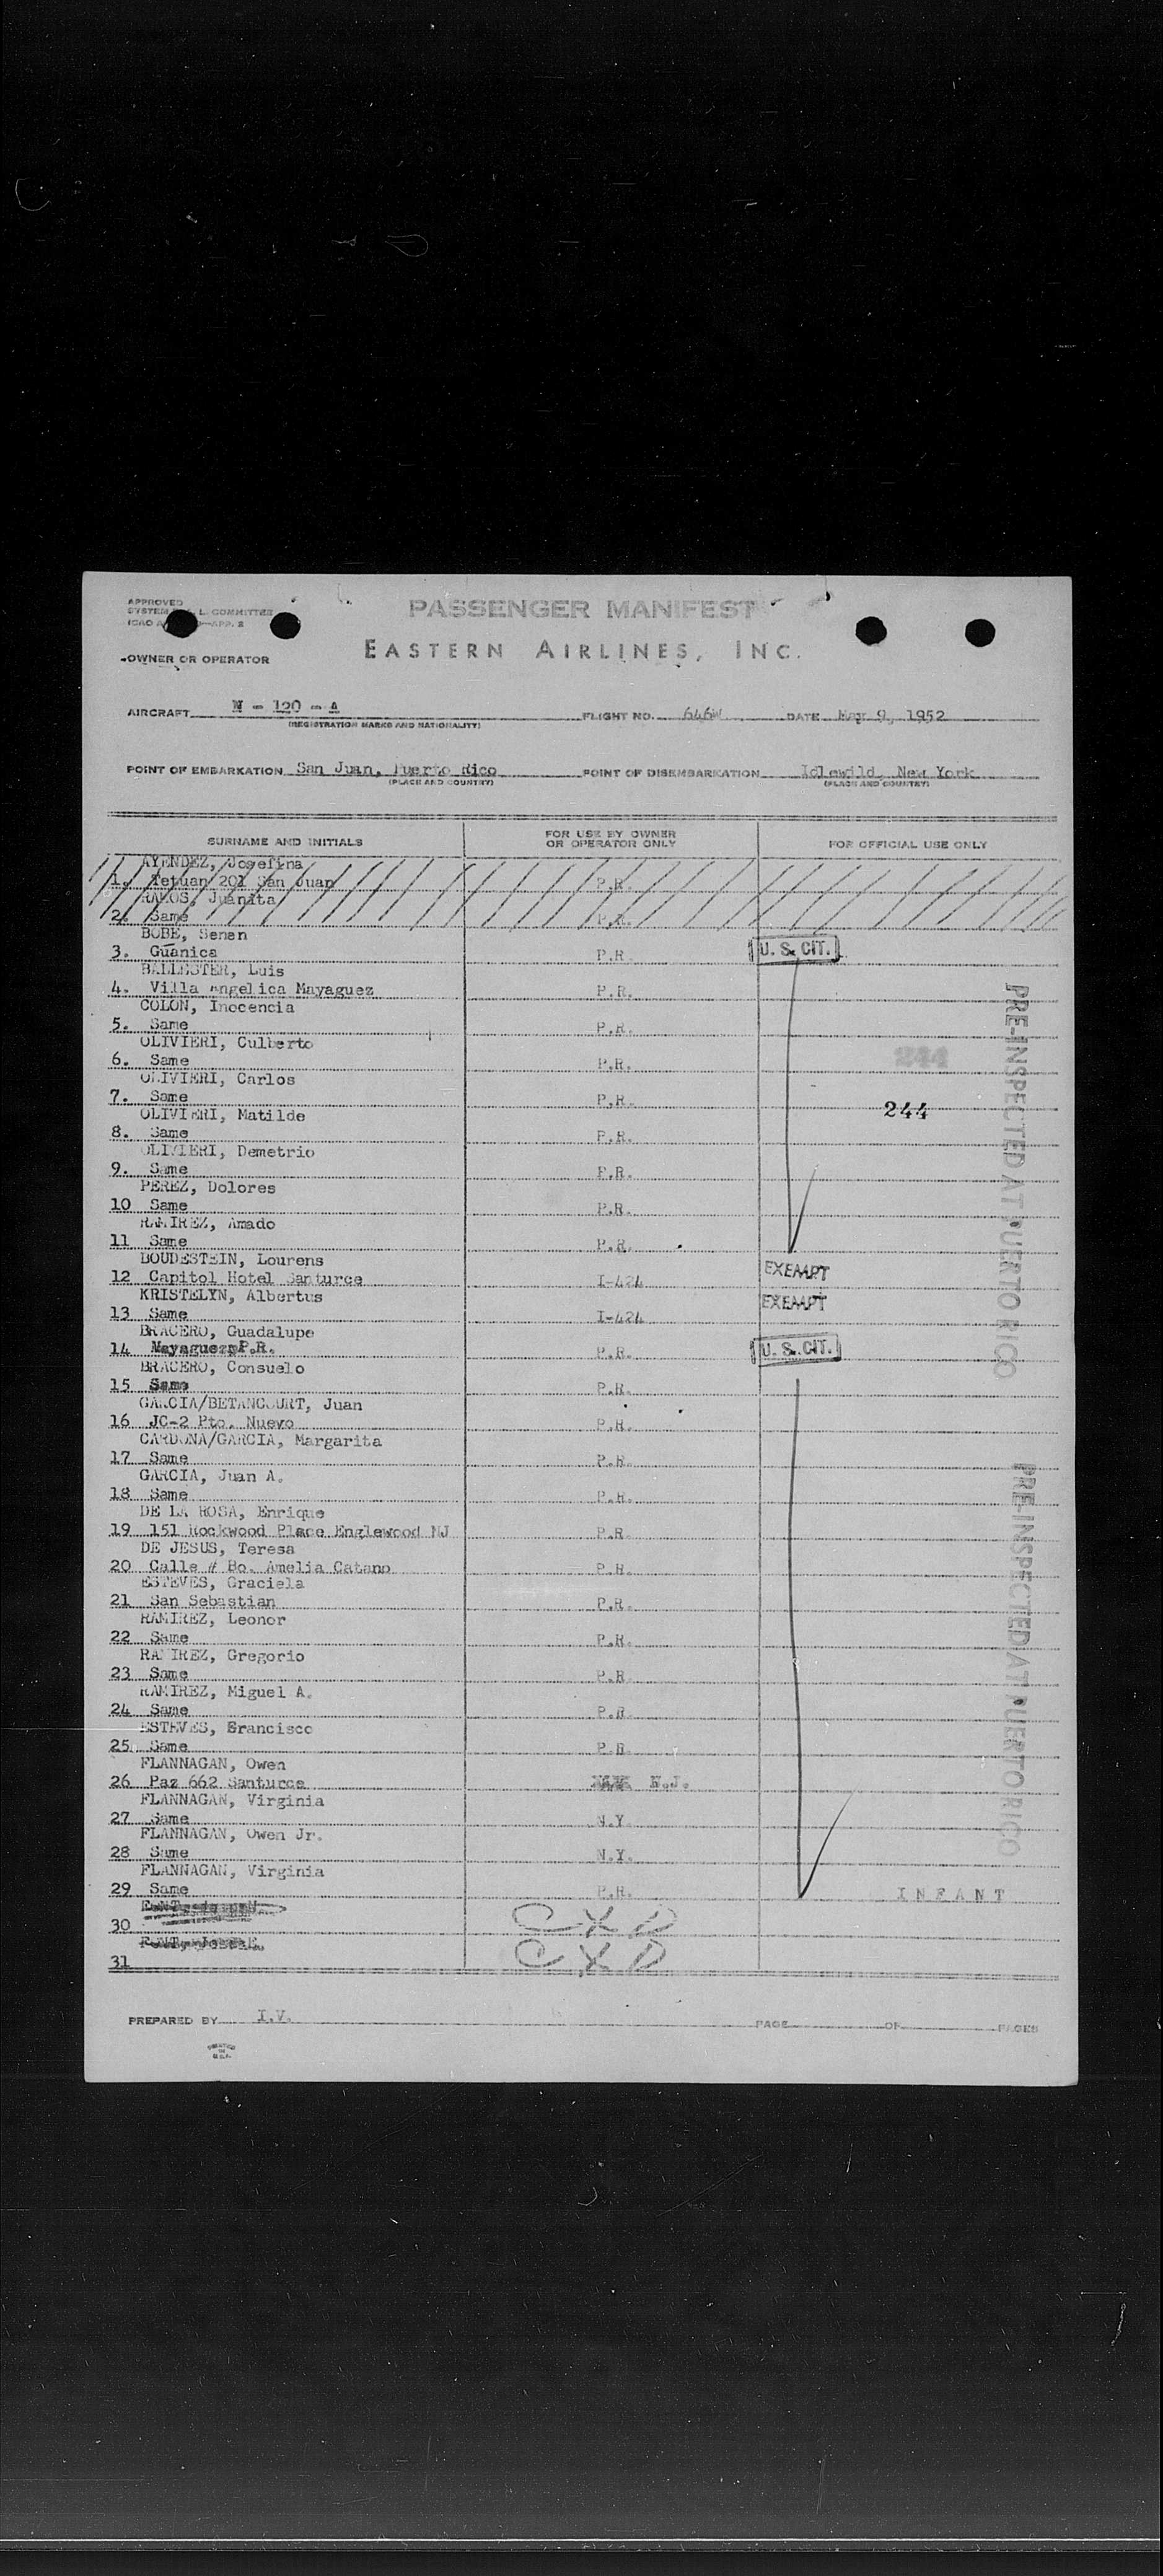 APPROVED
SYSTEM L. COMMITTEE
ICAO APP. 2
PASSENGER MANIFEST
EASTERN AIRLINES, INC.
OWNER OR OPERATOR
AIRCRAFT N - 120 - A
(REGISTRATION MARKS AND NATIONALITY)
FLIGHT NO. 646W DATE May 9, 1952
POINT OF EMBARKATION San Juan, Puerto Rico
(PLACE AND COUNTRY)
POINT OF DISEMBARKATION Idlewild, New York
(PLACE AND COUNTRY)
SURNAME AND INITIALS FOR USE BY OWNER OR OPERATOR ONLY FOR OFFICIAL USE ONLY
AYENDEZ, Josefina
1. Tetuan 201 San Juan P.R.
RAMOS, Juanita
2. Same P.R.
BOBE, Senen
3. Guanica P.R. U. S. CIT.
BALLESTER, Luis
4. Villa Angelica Mayaguez P.R.
COLON, Inocencia
5. Same P.R.
OLIVIERI, Culberto
6. Same P.R. 244
OLIVIERI, Carlos
7. Same P.R. 244
OLIVIERI, Matilde
8. Same P.R.
OLIVIERI, Demetrio
9. Same P.R.
PEREZ, Dolores
10 Same P.R.
RAMIREZ, Amado
11 Same P.R.
BOUDESTEIN, Lourens
12 Capitol Hotel Santurce I-424 EXEMPT
KRISTELYN, Albertus
13 Same I-424 EXEMPT
BRACERO, Guadalupe
14 Mayaguez P.R. P.R. U. S. CIT.
BRACERO, Consuelo
15 Same P.R.
GARCIA/BETANCOURT, Juan
16 JC-2 Pto. Nuevo P.R.
CARDONA/GARCIA, Margarita
17 Same P.R.
GARCIA, Juan A.
18 Same P.R.
DE LA ROSA, Enrique
19 151 Rockwood Place Englewood NJ P.R.
DE JESUS, Teresa
20 Calle # Bo. Amelia Catano P.R.
ESTEVES, Graciela
21 San Sebastian P.R.
RAMIREZ, Leonor
22 Same P.R.
RAMIREZ, Gregorio
23 Same P.R.
RAMIREZ, Miguel A.
24 Same P.R.
ESTEVES, Francisco
25 Same P.R.
FLANNAGAN, Owen
26 Paz 662 Santurce N.J.
FLANNAGAN, Virginia
27 Same N.Y.
FLANNAGAN, Owen Jr.
28 Same N.Y.
FLANNAGAN, Virginia
29 Same P.R. INFANT
30 CXD
31 CXD
PRE-INSPECTED AT PUERTO RICO
PRE-INSPECTED AT PUERTO RICO
PREPARED BY I.V. PAGE OF PAGES
PRINTED
IN
U.S.A.